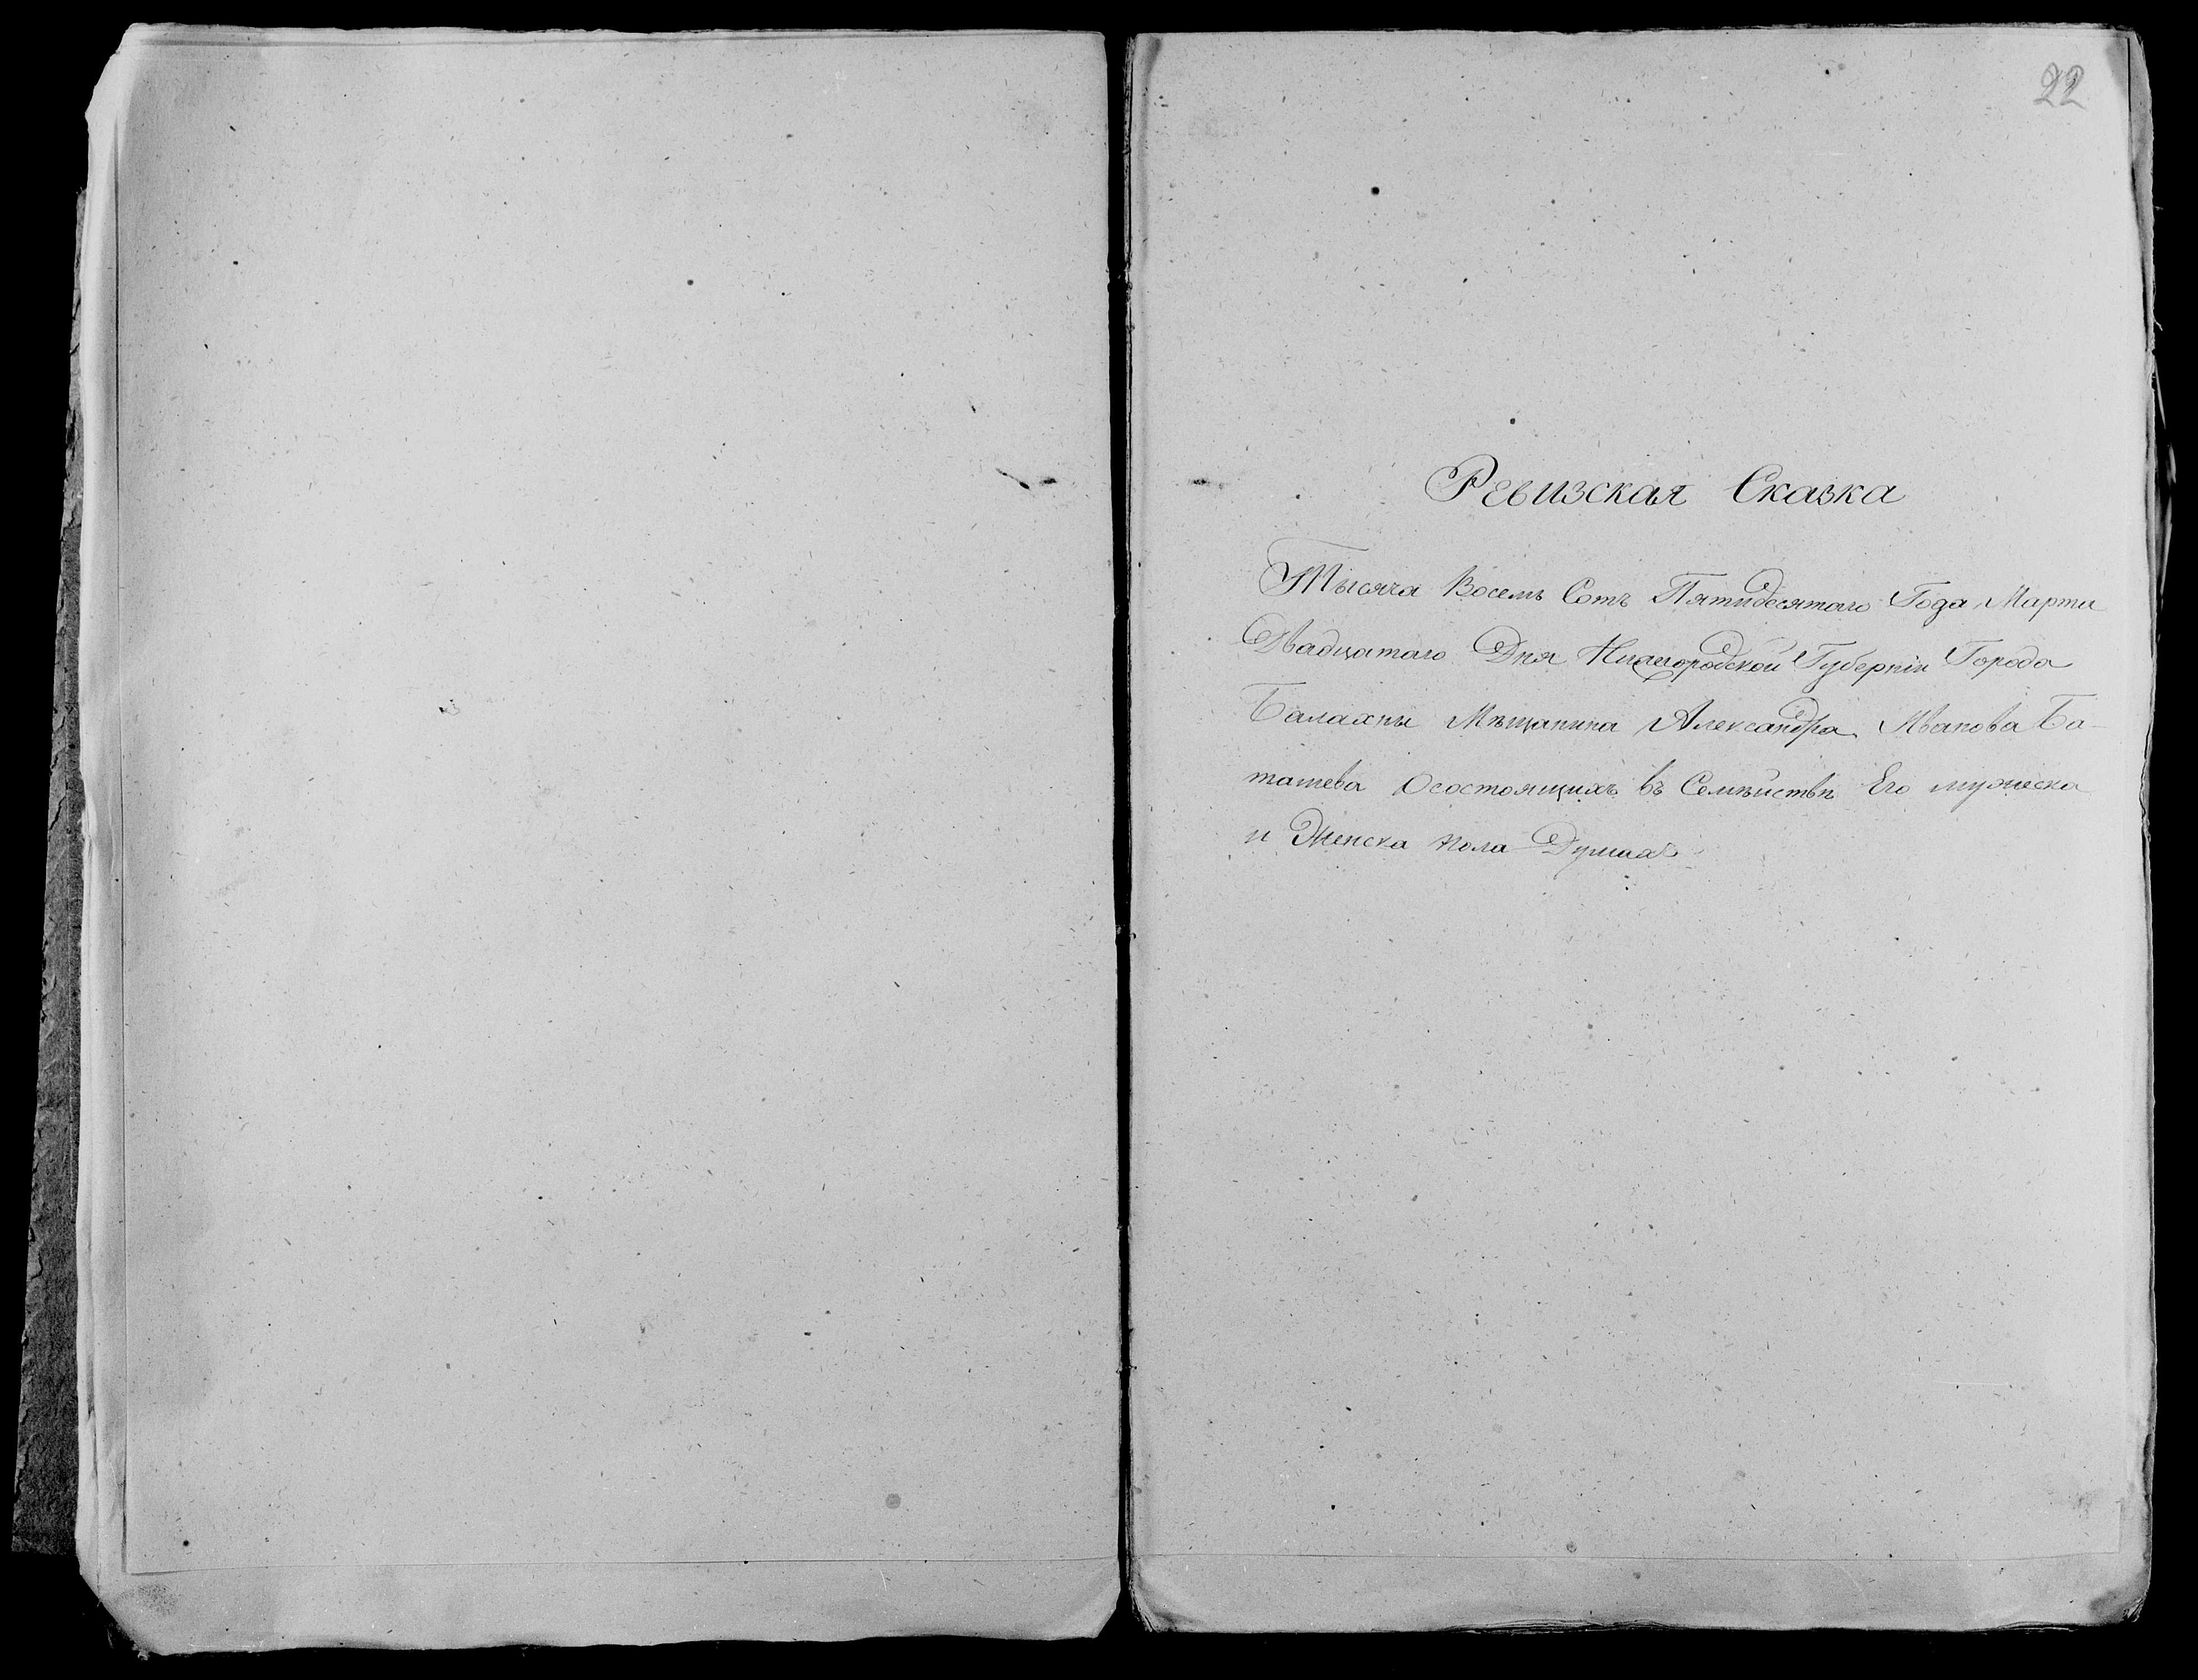 22
Ревизская Сказка
Тысяча Восемь Сотъ Пятидесятого Года, Марта
Двадцатаго Дня Нижегородской Губерніи Города
Балахны Мѣщанина Александра Иванова Ба-
ташева Осостоящихъ въ Семѣйствѣ Его мужеска
и Женска пола Душахъ